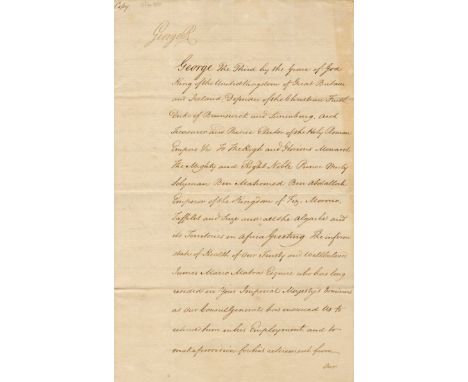 Copy
George R
George The Third by the Grace of God
King of the United Kingdom of Great Britain
and Ireland, Defender of the Christian Faith
Duke of Brunswick and Lunenburg, Arch
Treasurer and Prince Elector of the Holy Roman
Empire &c To The High and Glorious Monarch
The Mighty and Right Noble Prince Muley
Solyman Ben Mahomed Ben Abdallah
Emperor of the Kingdom of Fez, Morocco,
Taffilet and Suze and all the Algarbe and
its Territories in Africa Greeting The infirm
state of Health of Our Trusty and Wellbeloved
James Mario Matra Esquire who has long
resided in Your Imperial Majesty's Dominions
as our Consul General has induced Us to
relieve him in his Employment and to
make provision for his retirement from
our